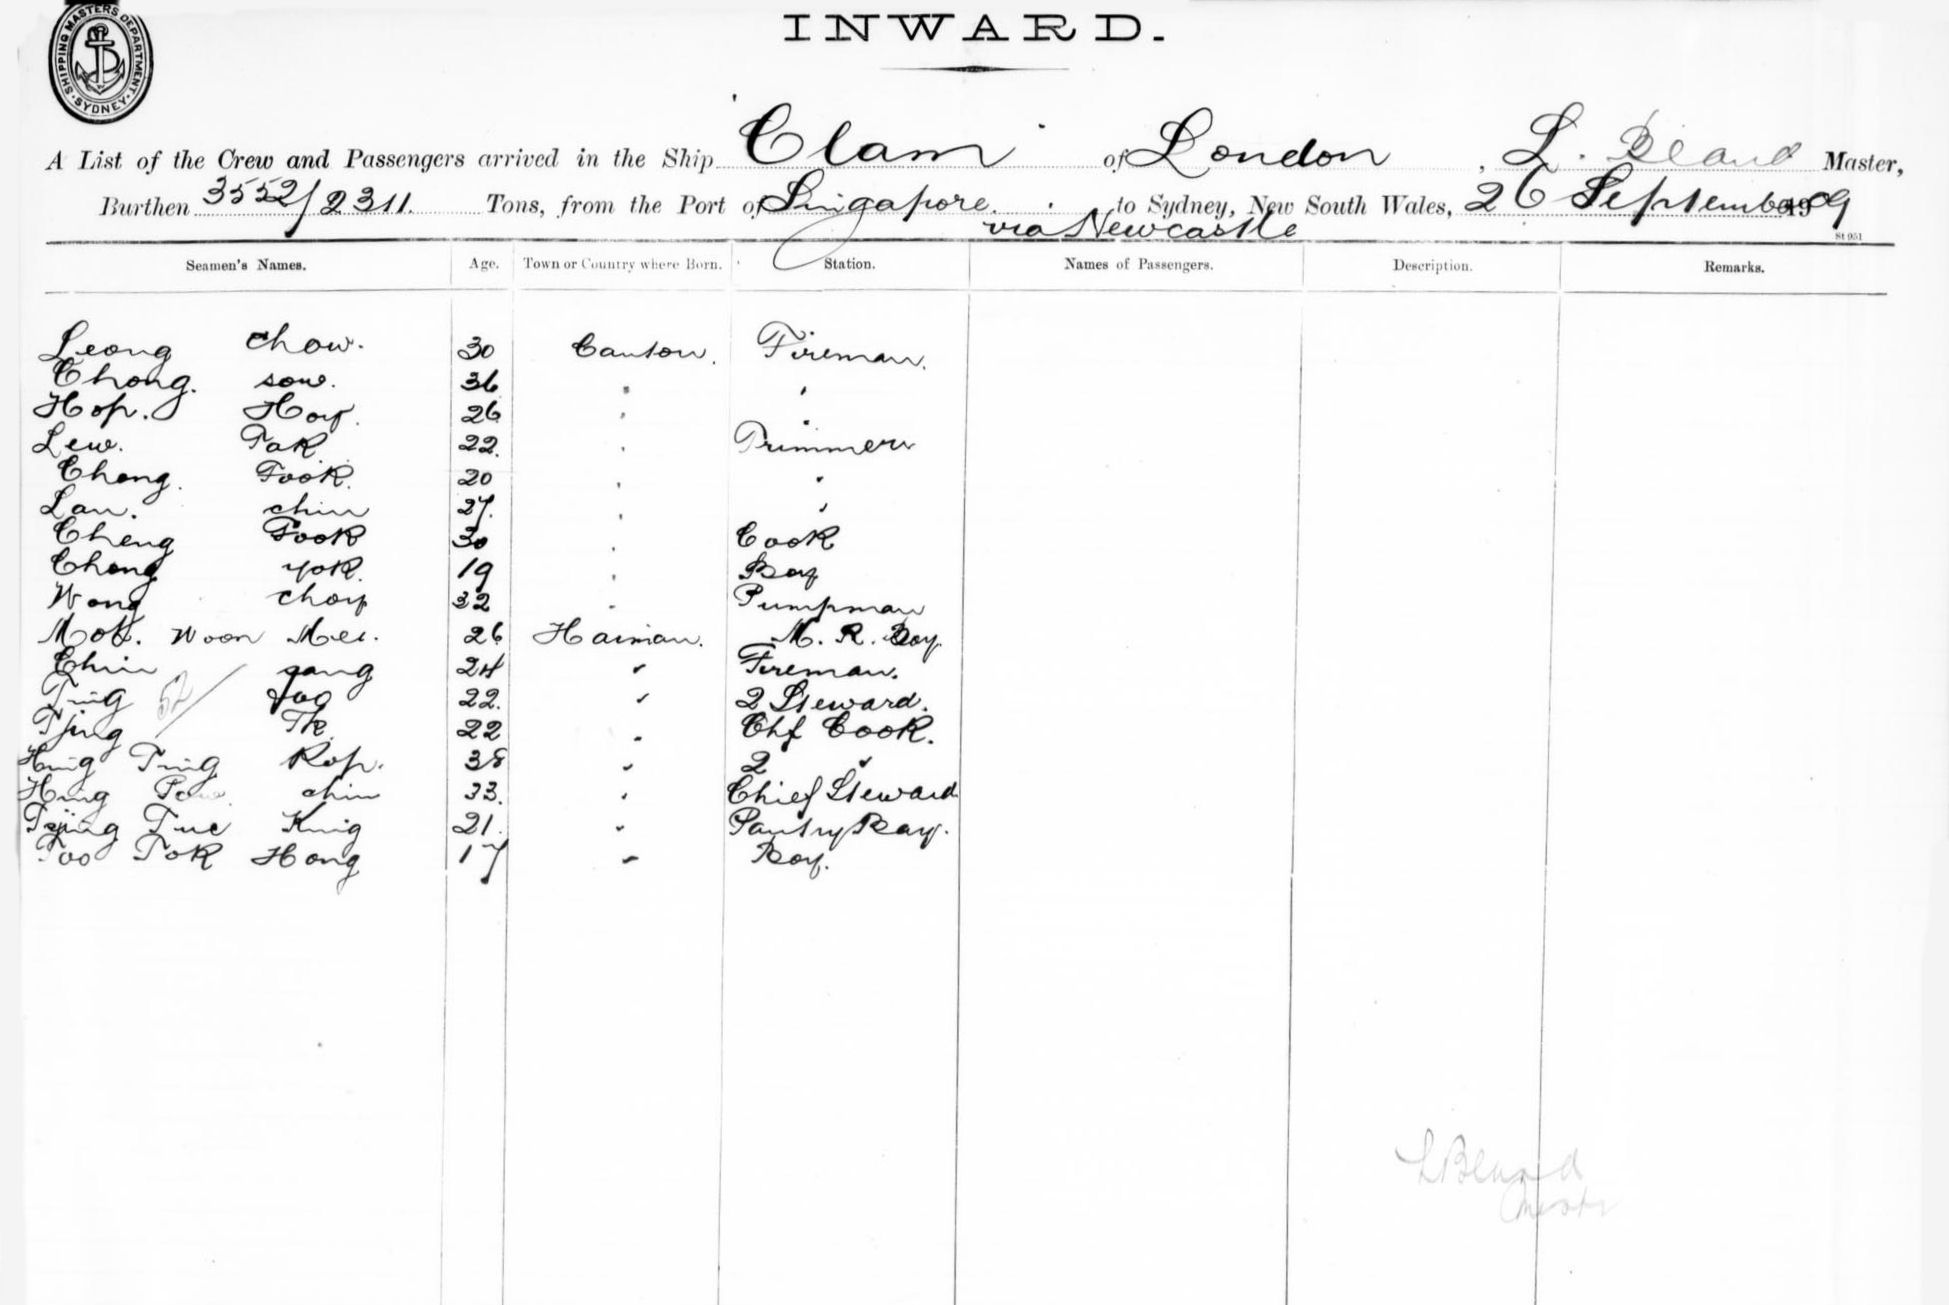 SHIPPING MASTERS DEPARTMENT · SYDNEY ·
INWARD.
A List of the Crew and Passengers arrived in the Ship Clam of London, L. Master,
Burthen 3552/2311. Tons, from the Port of Singapore to Sydney, New South Wales, 26 September 1909
via Newcastle
St 951
Seamen's Names. Age. Town or Country where Born. Station. Names of Passengers. Description. Remarks.
Leong Chow. 30 Canton. Fireman.
Chong. sow. 36 " "
Hop. Hoy. 26 " "
Lew. Tak 22. " Trimmer
Chong. Fook. 20 " "
Lan. chin 27. " "
Cheng Fook 30 " Cook
Chong Yok. 19 " Boy
Wong Choy 32 " Pumpman
Mok. Woon Mei. 26 Hainan. M. R. Boy
Chin sang 24 " Fireman.
Ting Foo 22. " 2 Steward.
52/
Tjing 22 " Chf Cook.
Hing Ting Kop. 38 " 2 "
Hing chin 33. " Chief Steward
Tzing Tuc King 21. " Pantry Boy.
Foo Tok Hong 17 " Boy.